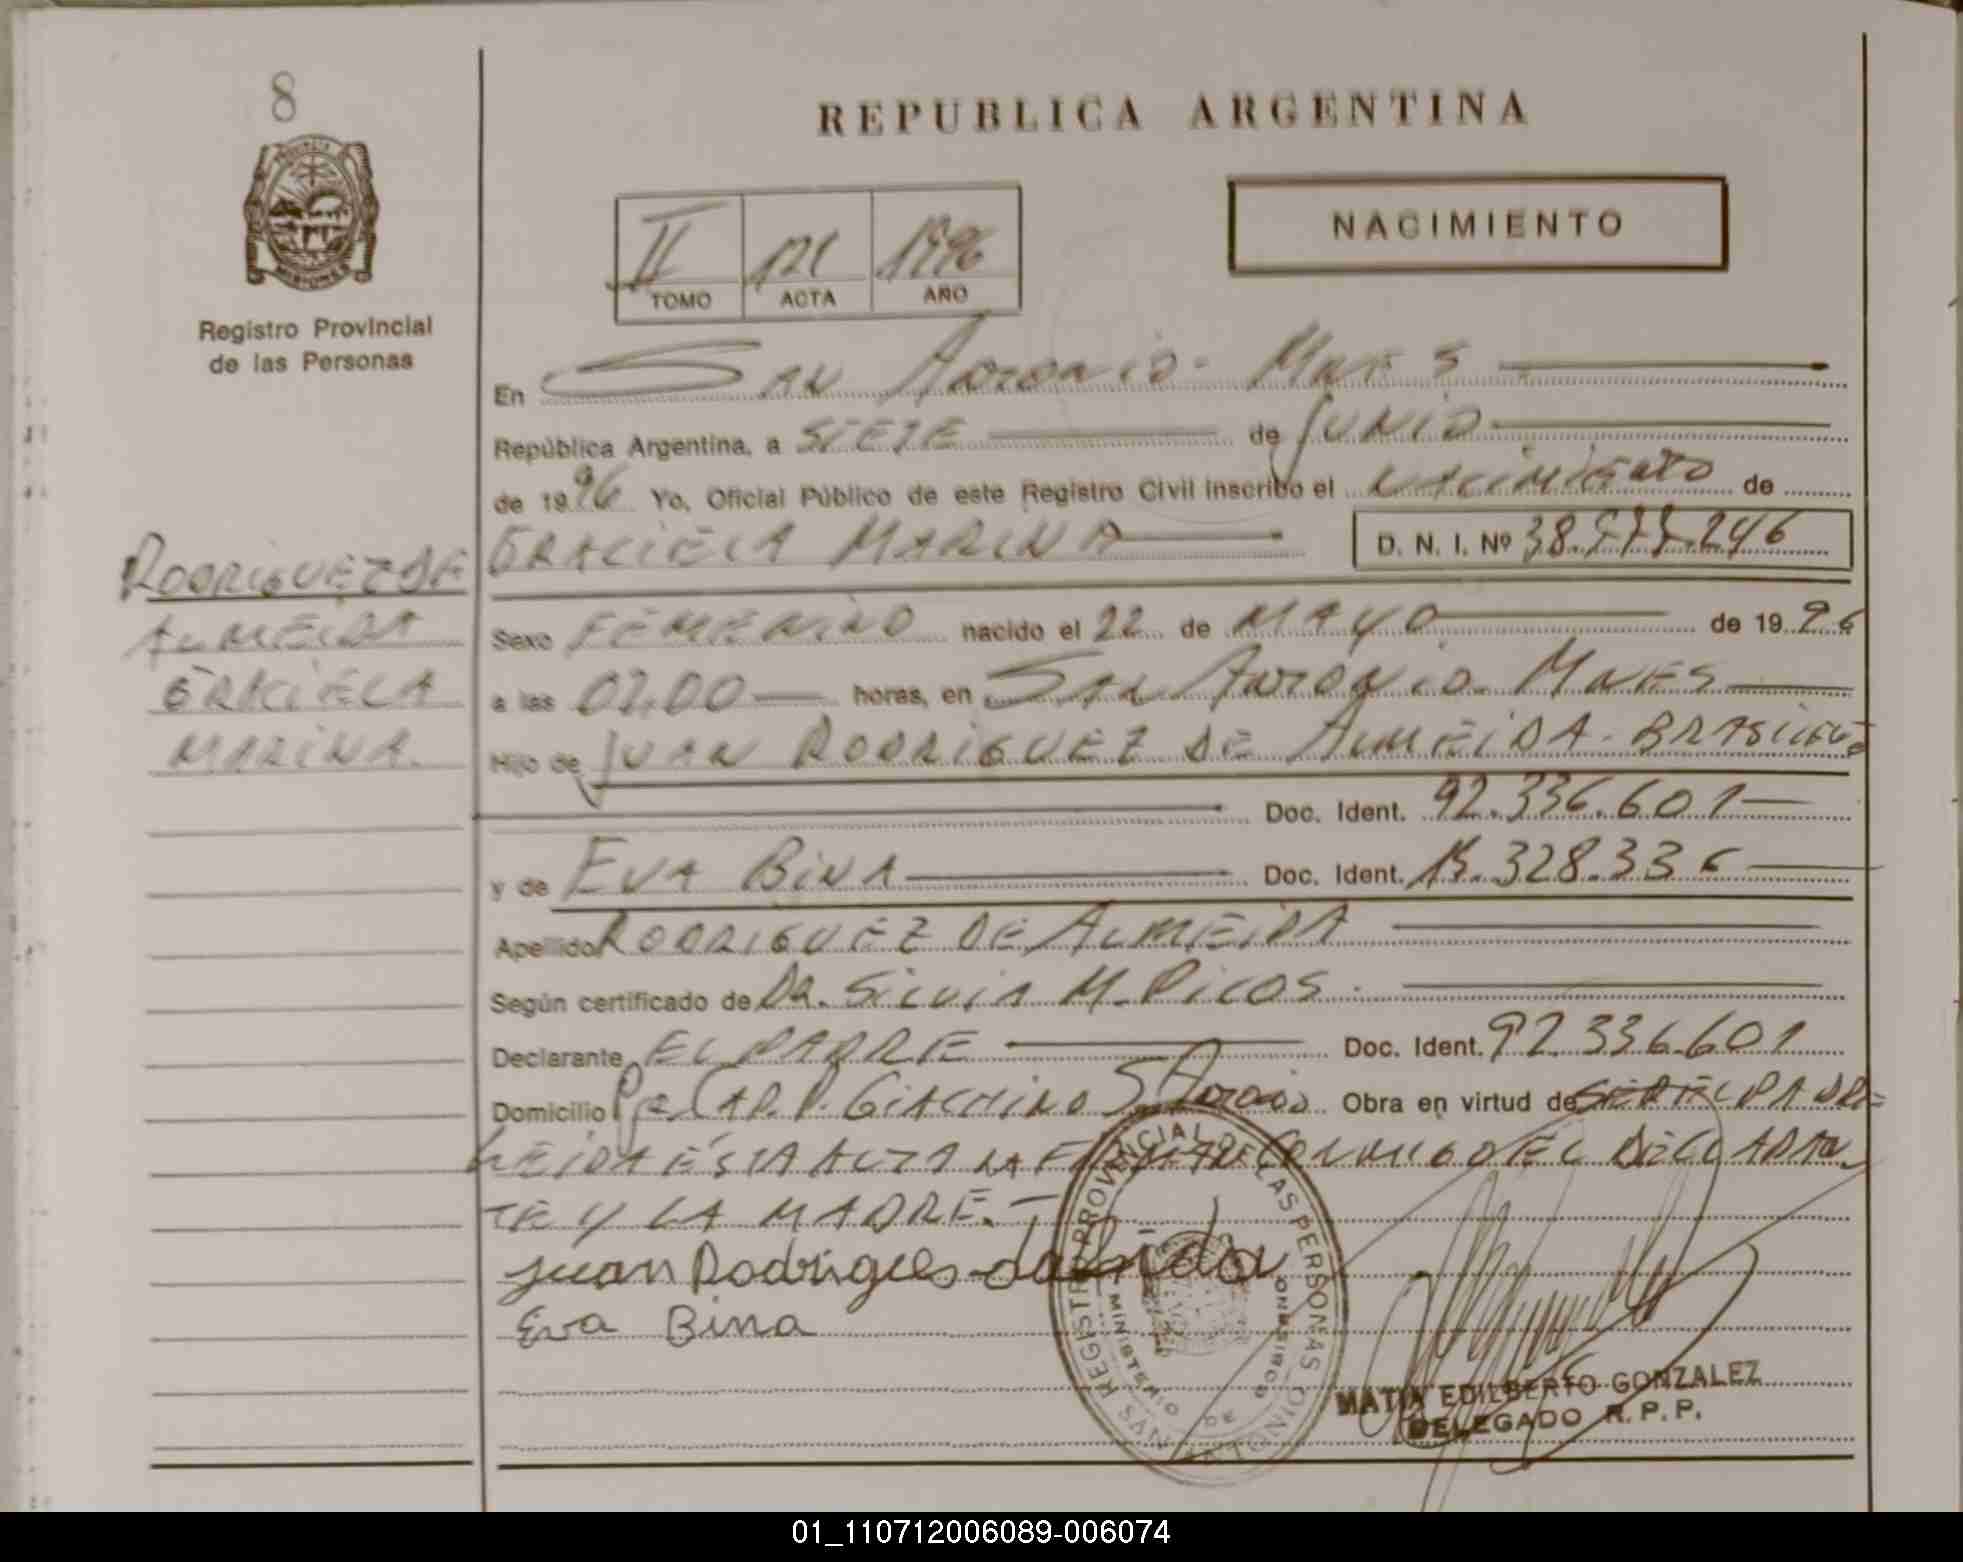 8
REPUBLICA ARGENTINA
NACIMIENTO
II 121 1996
TOMO ACTA AÑO
PROVINCIA
MISIONES
Registro Provincial
de las Personas
En SAN ANTONIO - MNES
República Argentina, a SIETE de JUNIO
de 1996 Yo, Oficial Público de este Registro Civil inscribo el NACIMIENTO de
GRACIELA MARINA D. N. I. Nº 246
RODRIGUEZ DE
ALMEIDA
GRACIELA
MARINA.
Sexo FEMENINO nacido el 22 de MAYO de 1996
a las horas, en SAN ANTONIO MNES
Hijo de JUAN RODRIGUEZ DE ALMEIDA - BRASILEÑO
Doc. Ident. 92.336.601
y de EVA BINA Doc. Ident. 328.336
Apellido RODRIGUEZ DE ALMEIDA
Según certificado de DR. SILVIA M. PICOS
Declarante EL PADRE Doc. Ident. 92.336.601
Domicilio GIACHINO S. Antonio Obra en virtud de SER EL PADRE
LEIDA ESTA ACTA LA FIRMAN CONMIGO EL DECLARAN
TE Y LA MADRE. -
Juan Rodrigues
Eva Bina
REGISTRO PROVINCIAL DE LAS PERSONAS
MINISTERIO DE GOBIERNO
SAN ANTONIO
EDILBERTO GONZALEZ
DELEGADO R. P. P.
01_110712006089-006074